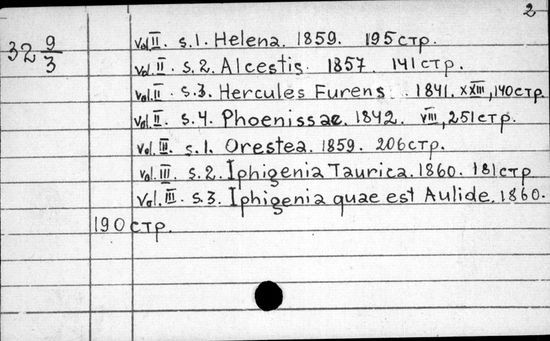 2
32 9/3
vol. II. s.1. Helena. 1859. 195 стр.
vol. II. s.2. Alcestis. 1857. 141 стр.
vol. II. s.3. Hercules Furens. 1841. XXIII, 140 стр
vol. II. s.4. Phoenissae. 1842. VIII, 251 стр.
vol. III. s.1. Orestea. 1859. 206 стр.
vol. III. s.2. Iphigenia Taurica. 1860. 181 стр
vol. III. s.3. Iphigenia quae est Aulide. 1860.
190 стр.